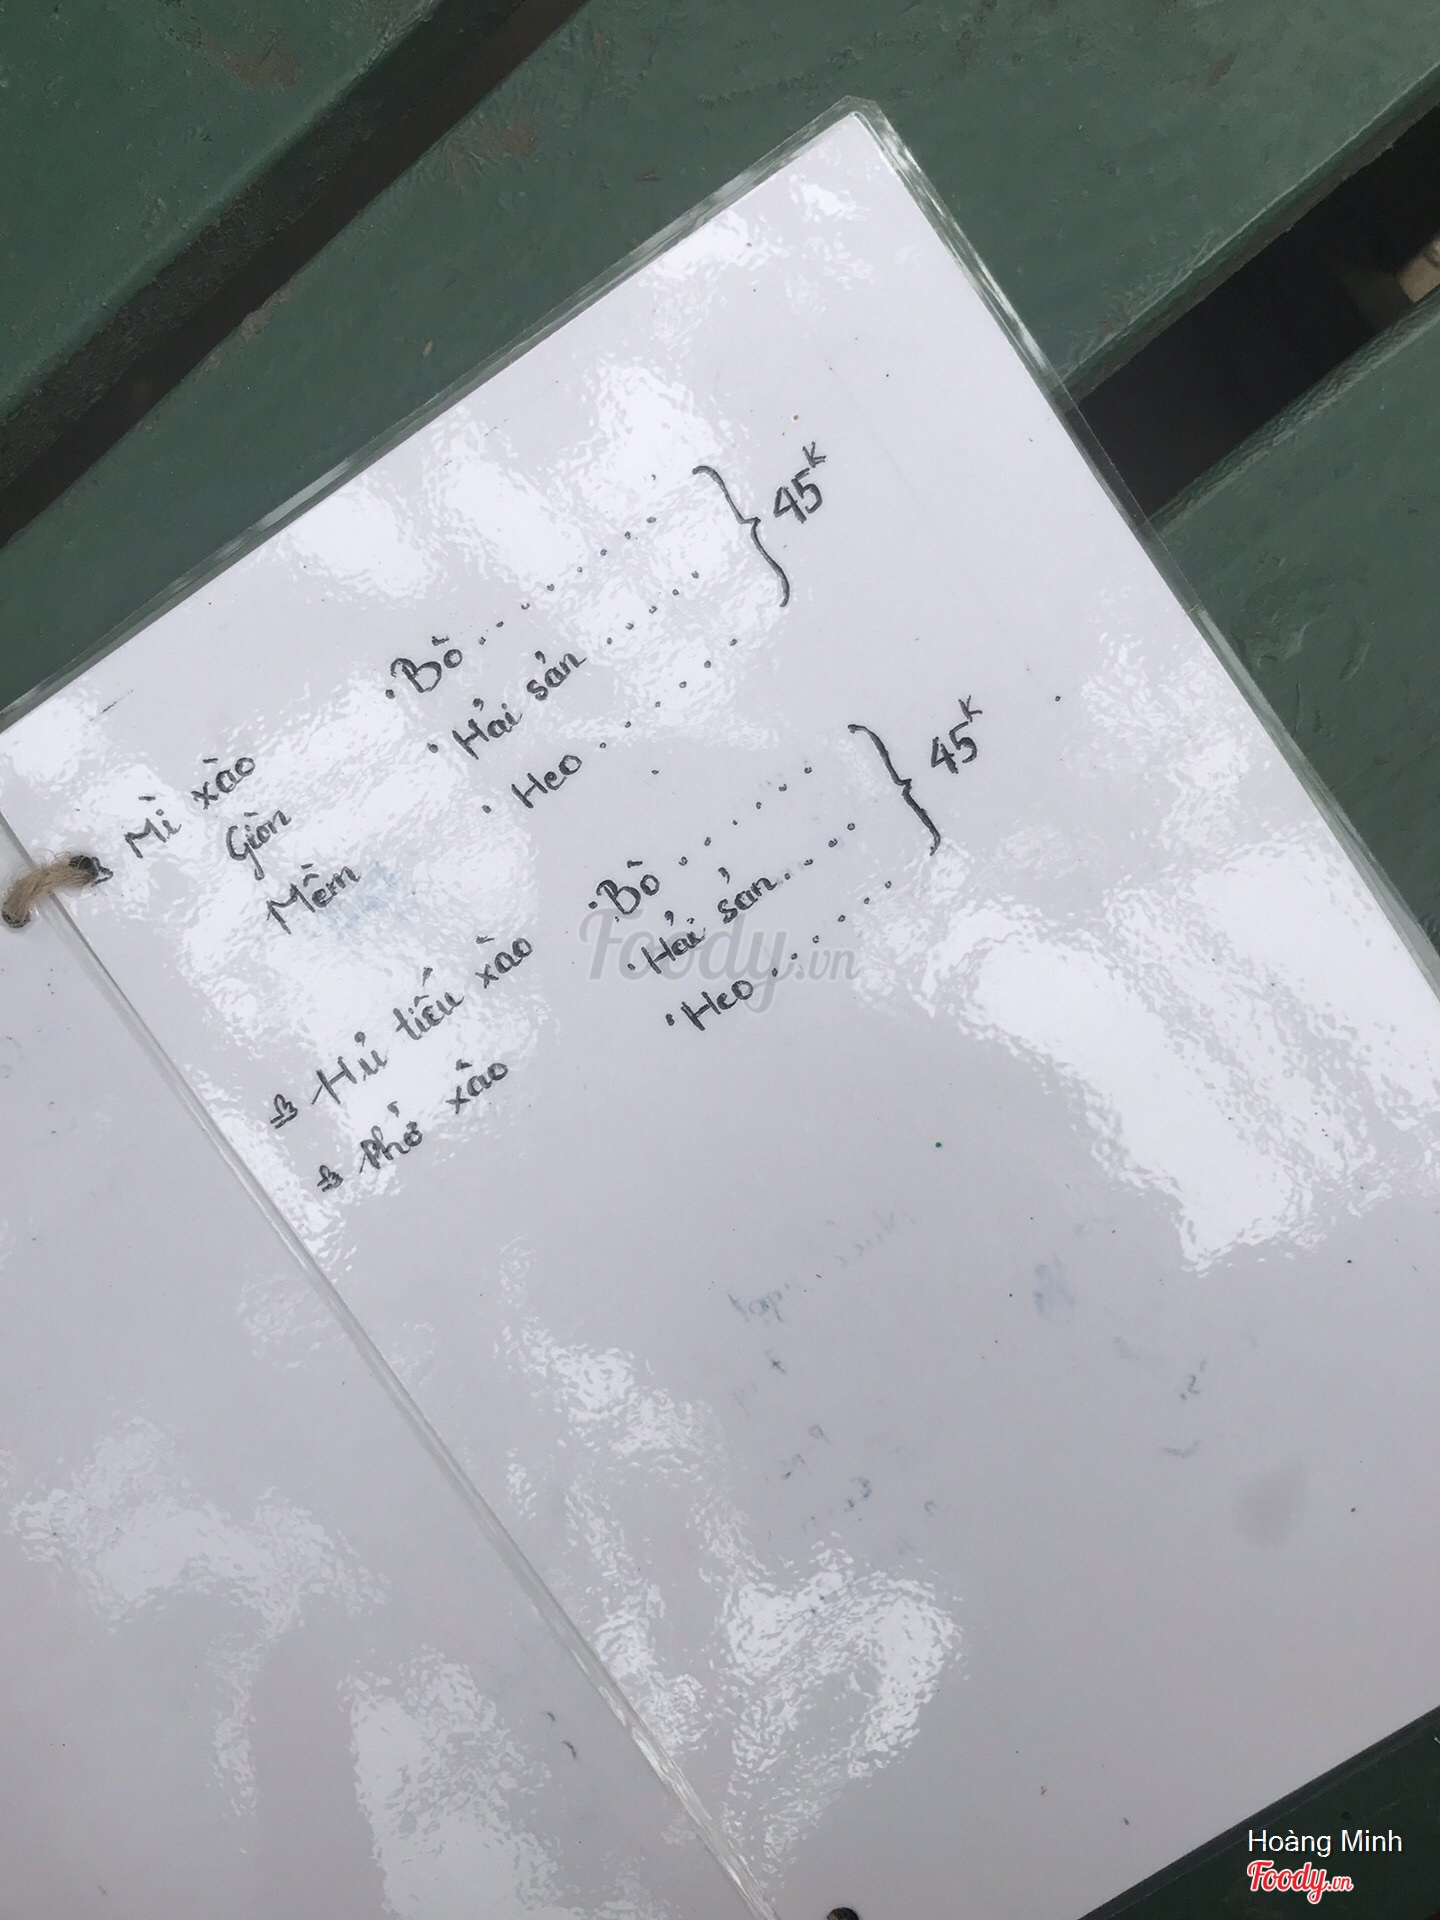 Mì xào
Giòn
Mềm
• Bò ........
• Hải sản ......
• Heo ......
} 45K
Hủ tiếu xào
Phở xào
• Bò ......
• Hải sản ....
• Heo ......
} 45K
Foody.vn
Hoàng Minh
Foody.vn